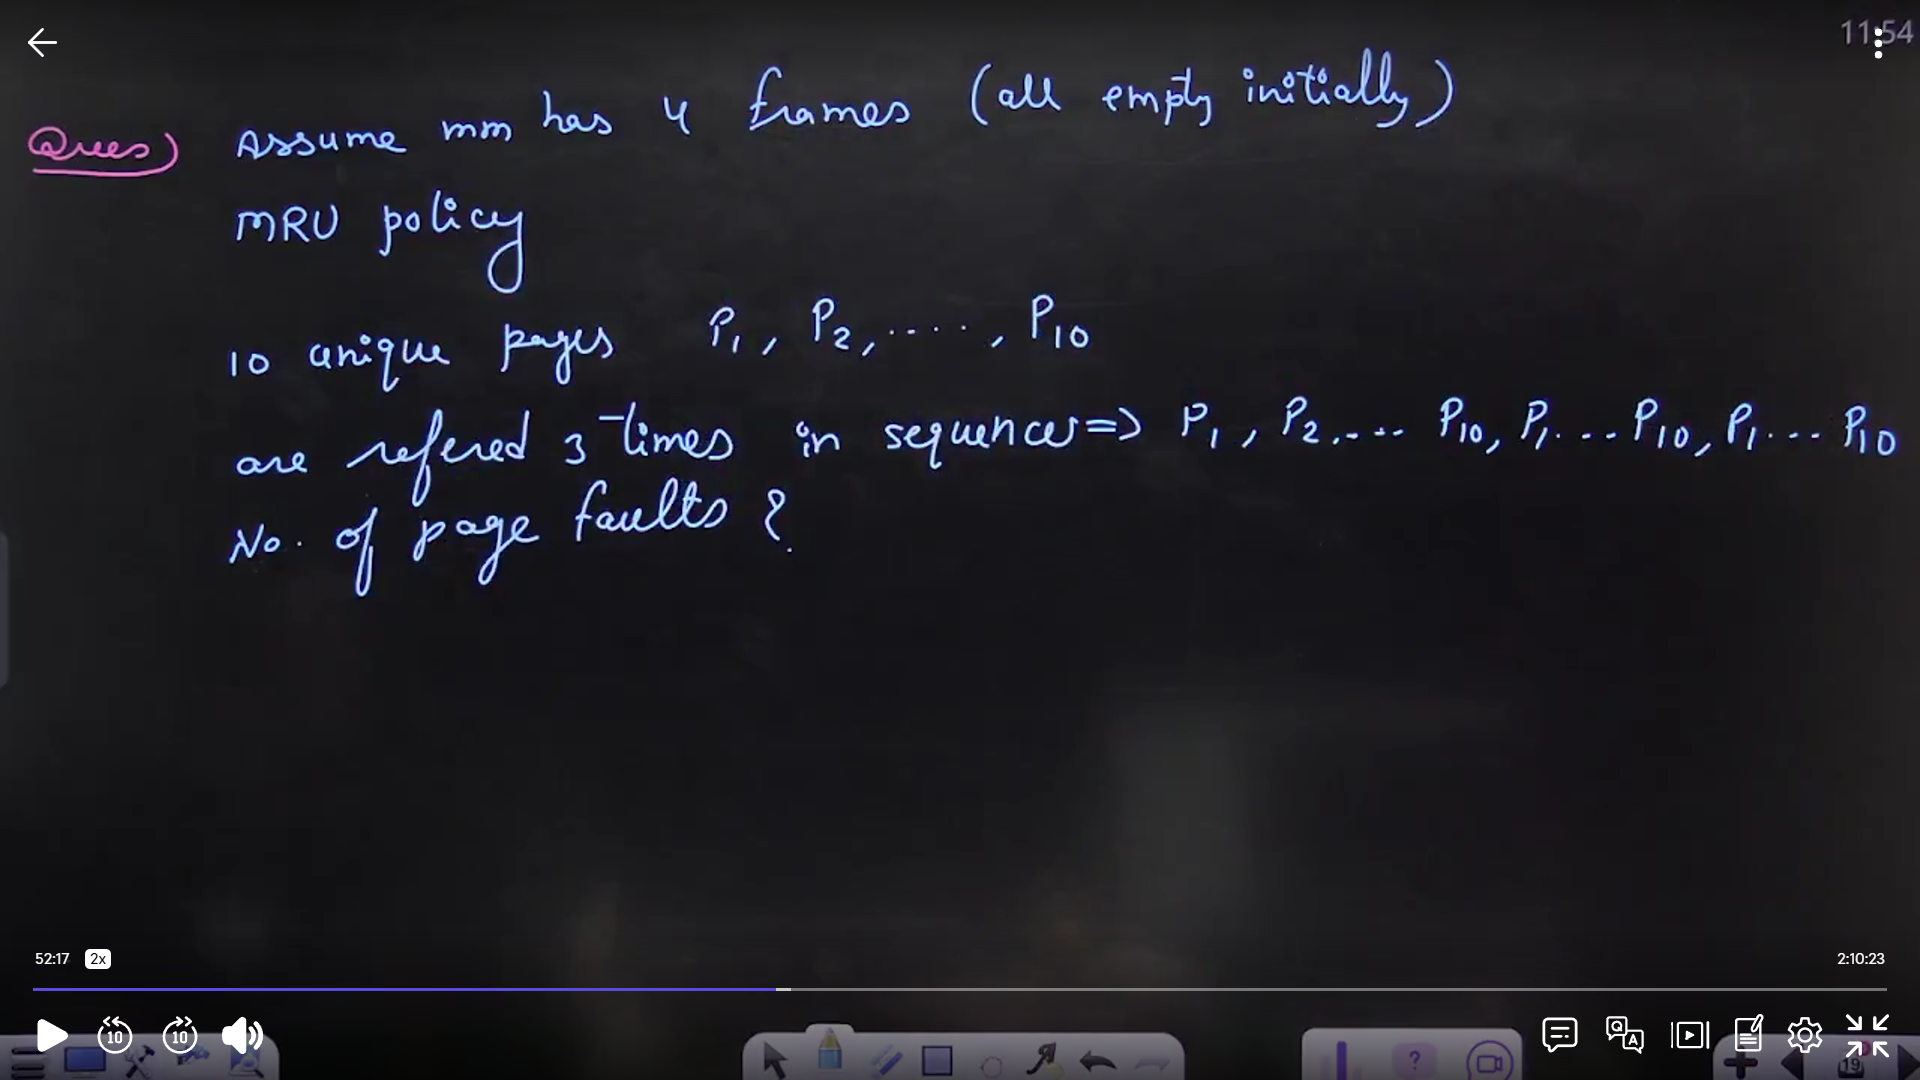 11:54
Assume mm has 4 frames (all empty initially)
Ques)
MRU policy
10 unique pages P1, P2, ....., P10
are refered 3 times in sequence => P1, P2, .... P10, P1 .... P10, P1 .... P10
No. of page faults ?
52:17 2x 2:10:23
10 10
? 19